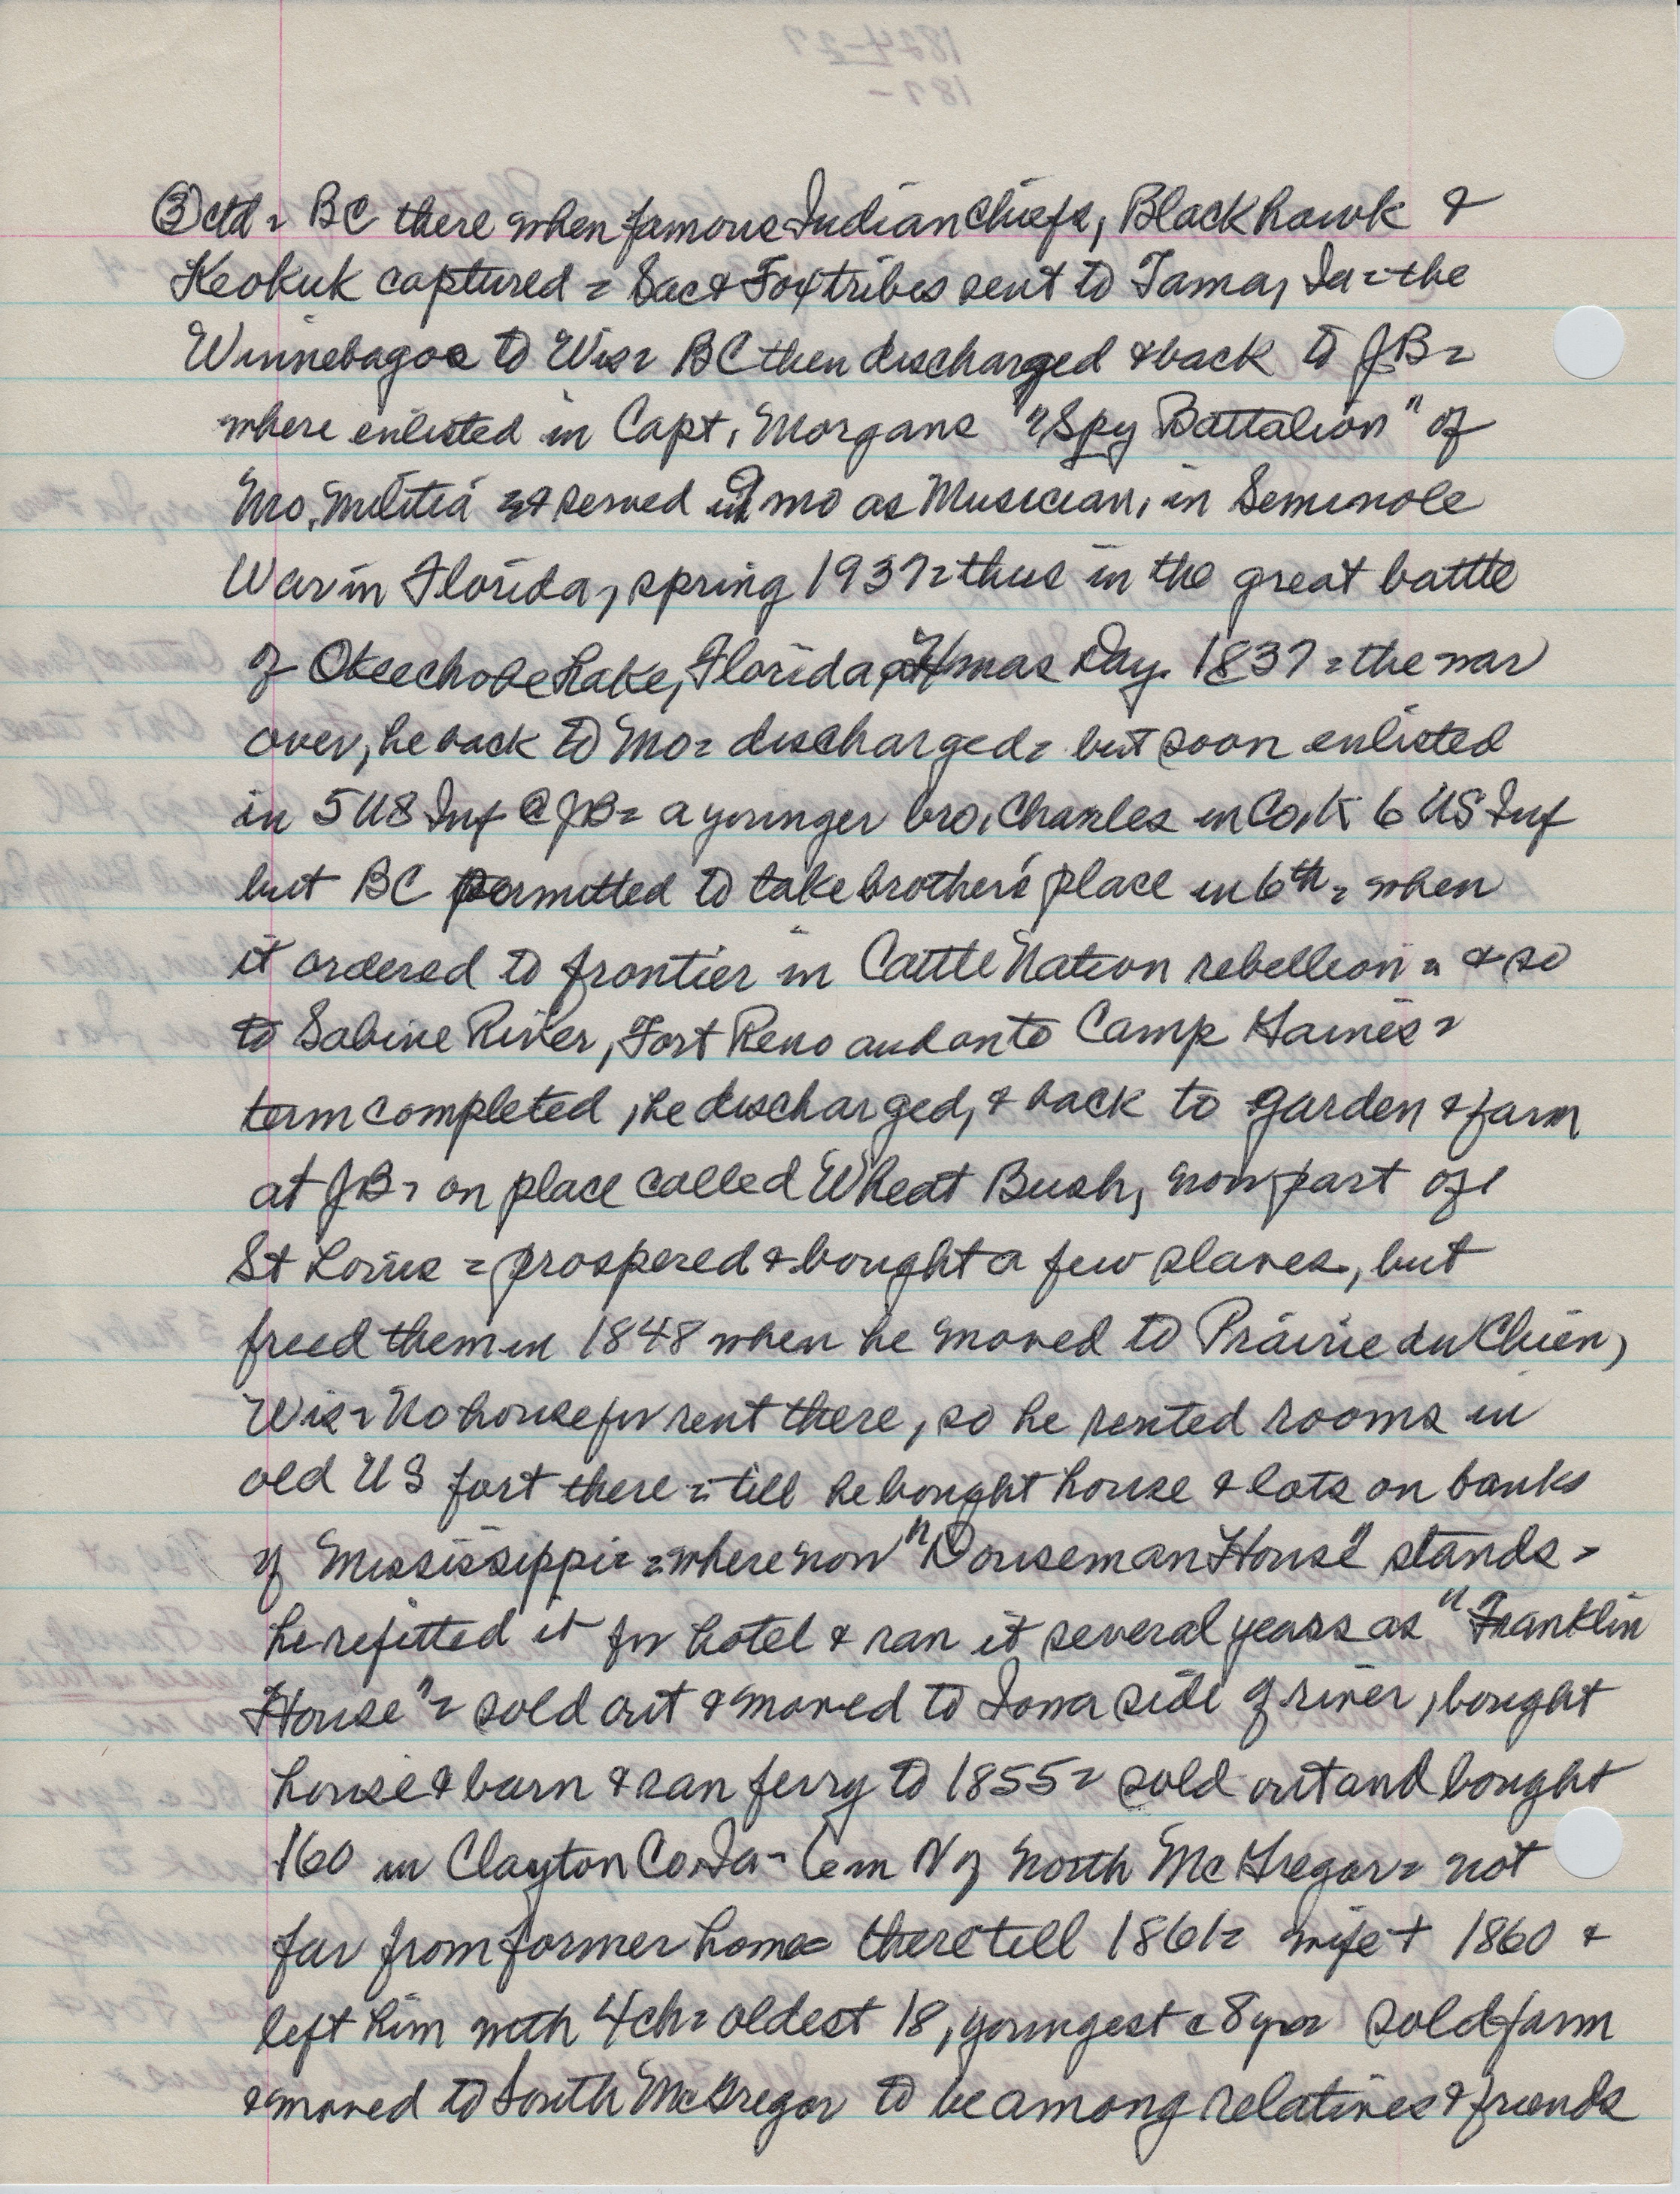 ③ctd = BC there when famous Indian Chiefs, Blackhawk &
Keokuk captured = Sac & Fox tribes sent to Tama, Ia = the
Winnebagoes to Wis = BC then discharged & back to JB =
where enlisted in Capt. Morgans "Spy Battalion" of
Mo. Militia = & served mo as Musician, in Seminole
War in Florida, spring 1937 = thus in the great battle
of Okeechobe Lake, Florida, Xmas Day. 1837 = the war
over, he back to Mo = discharged = but soon enlisted
in 5 US Inf @ JB = a younger bro. Charles in Co. K 6 US Inf
but BC permitted to take brother's place in 6th = when
it ordered to frontier in Cattle Nation rebellion = & so
to Sabine River, Fort Reno and onto Camp Haines =
term completed, he discharged, & back to garden & farm
at JB = on place called Wheat Bush, now part of
St Louis = prospered & bought a few slaves, but
freed them in 1848 when he moved to Prairie du Chien,
Wis = No house for rent there, so he rented rooms in
old US fort there = till he bought house & lots on banks
of Mississippi = where now "Douseman House" stands =
he refitted it for hotel & ran it several years as "Franklin
House" = sold out & moved to Iowa side of river, bought
house & barn & ran ferry to 1855 = sold out and bought
160 in Clayton Co. Ia - 6 m N of North McGregor = not
far from former home = there till 1861 = wife + 1860 &
left him with 4 ch = oldest 18, youngest = 8 yrs sold farm
& moved to South McGregor to be among relatives & friends